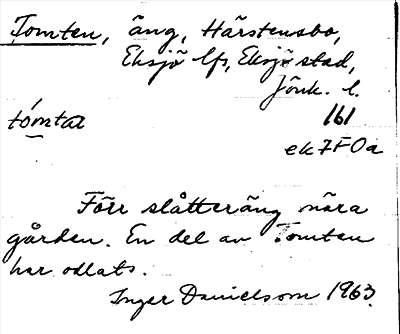 Tomten, äng, Härstensbo,
Eksjö lfs, Eksjö stad,
Jönk. l.
tómta 161
ek 7F0a
Förr slåtteräng nära
gården. En del av Tomten
har odlats.
Inger Danielsson 1963.